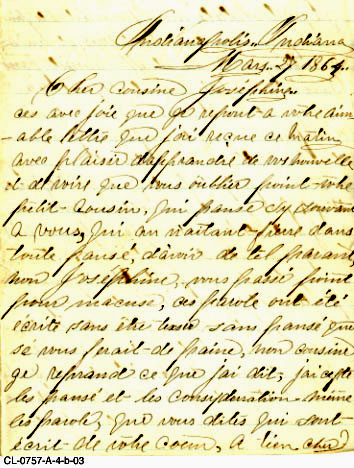 Indianapolis. Indiana
Mars. 27 1864.
Cher cousine Josephine.
ces avec joie que je repont a votre aim-
able lettre que j'ai reçue ce matin
avec plaisir d'apprandre de vos nouvelle
et de voire que vous oublier point votre
petit cousin, qui panse sy souvant
a vous, qui an naitant fiere dans
toute pansé, d'avoir de tel parant,
non Joséphine, vous passé point
pour macuse, ces parole ont été
écrits sans être sans pansé que
sé vous ferait de paine, mon cousine
ge reprand ce que jai dit, j'aicepte
les pansé et les consideration même
les parole, que vous dites qui sont
écrit de votre coeur, a bien cher
CL-0757-A-4-b-03